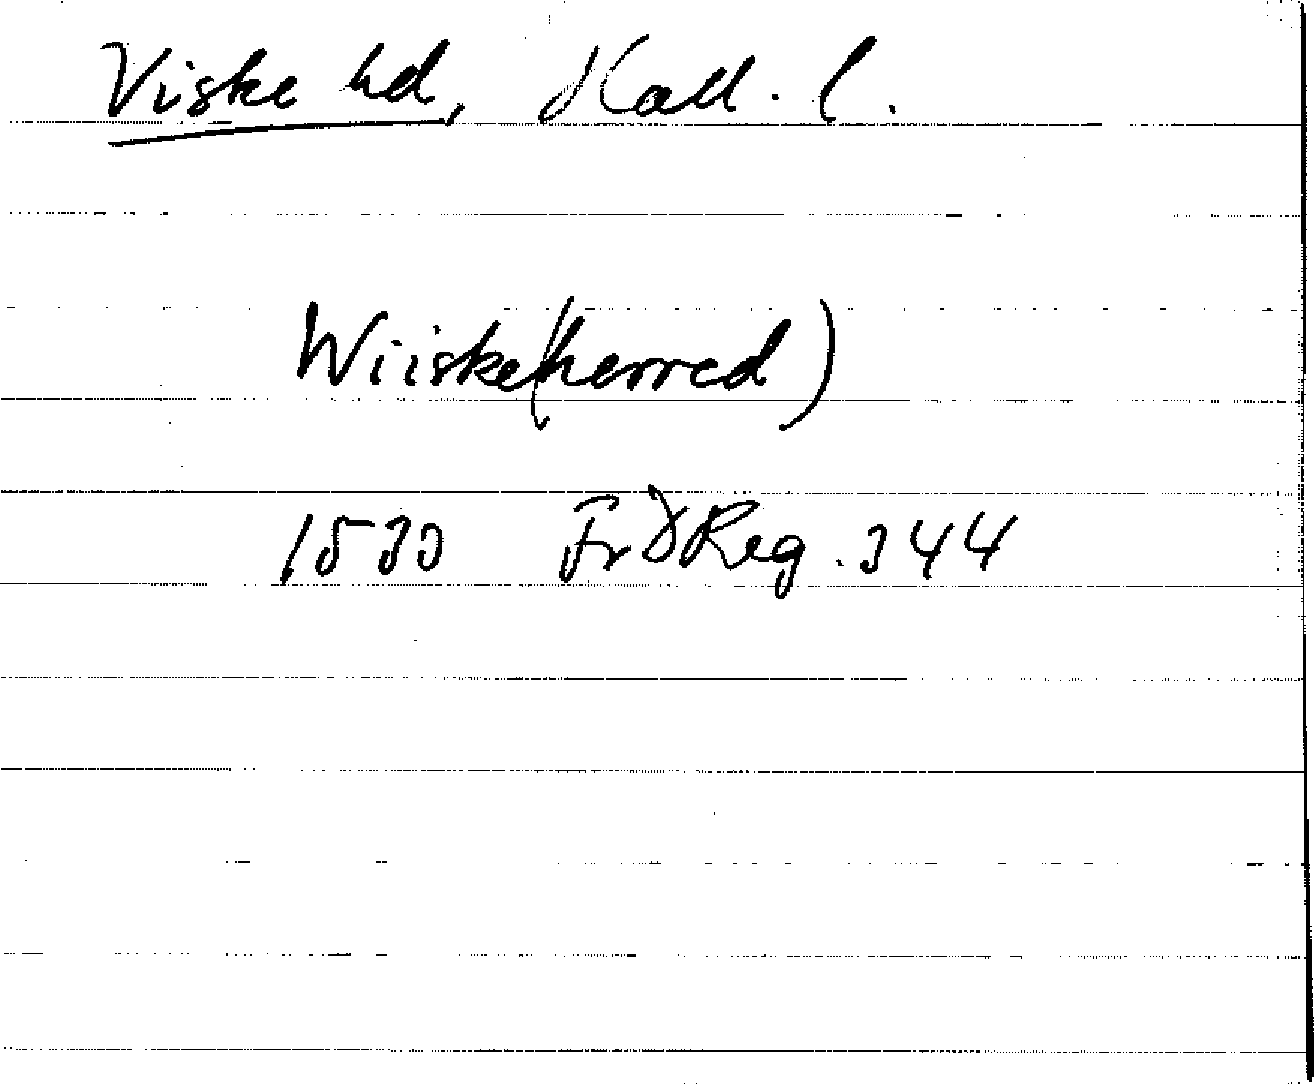 Viske hd, Hall. l.
Wiiske(herred)
1530 FrDReg. 344